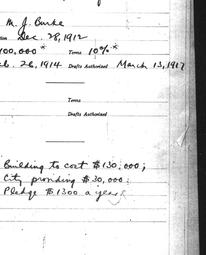 M. J. Burke
Dec. 28, 1912
100,000* Terms 10%*
26, 1914 Drafts Authorized March 13, 1917
Terms
Drafts Authorized
Building to cost $130,000;
City providing $30,000.
Pledge $1300 a year